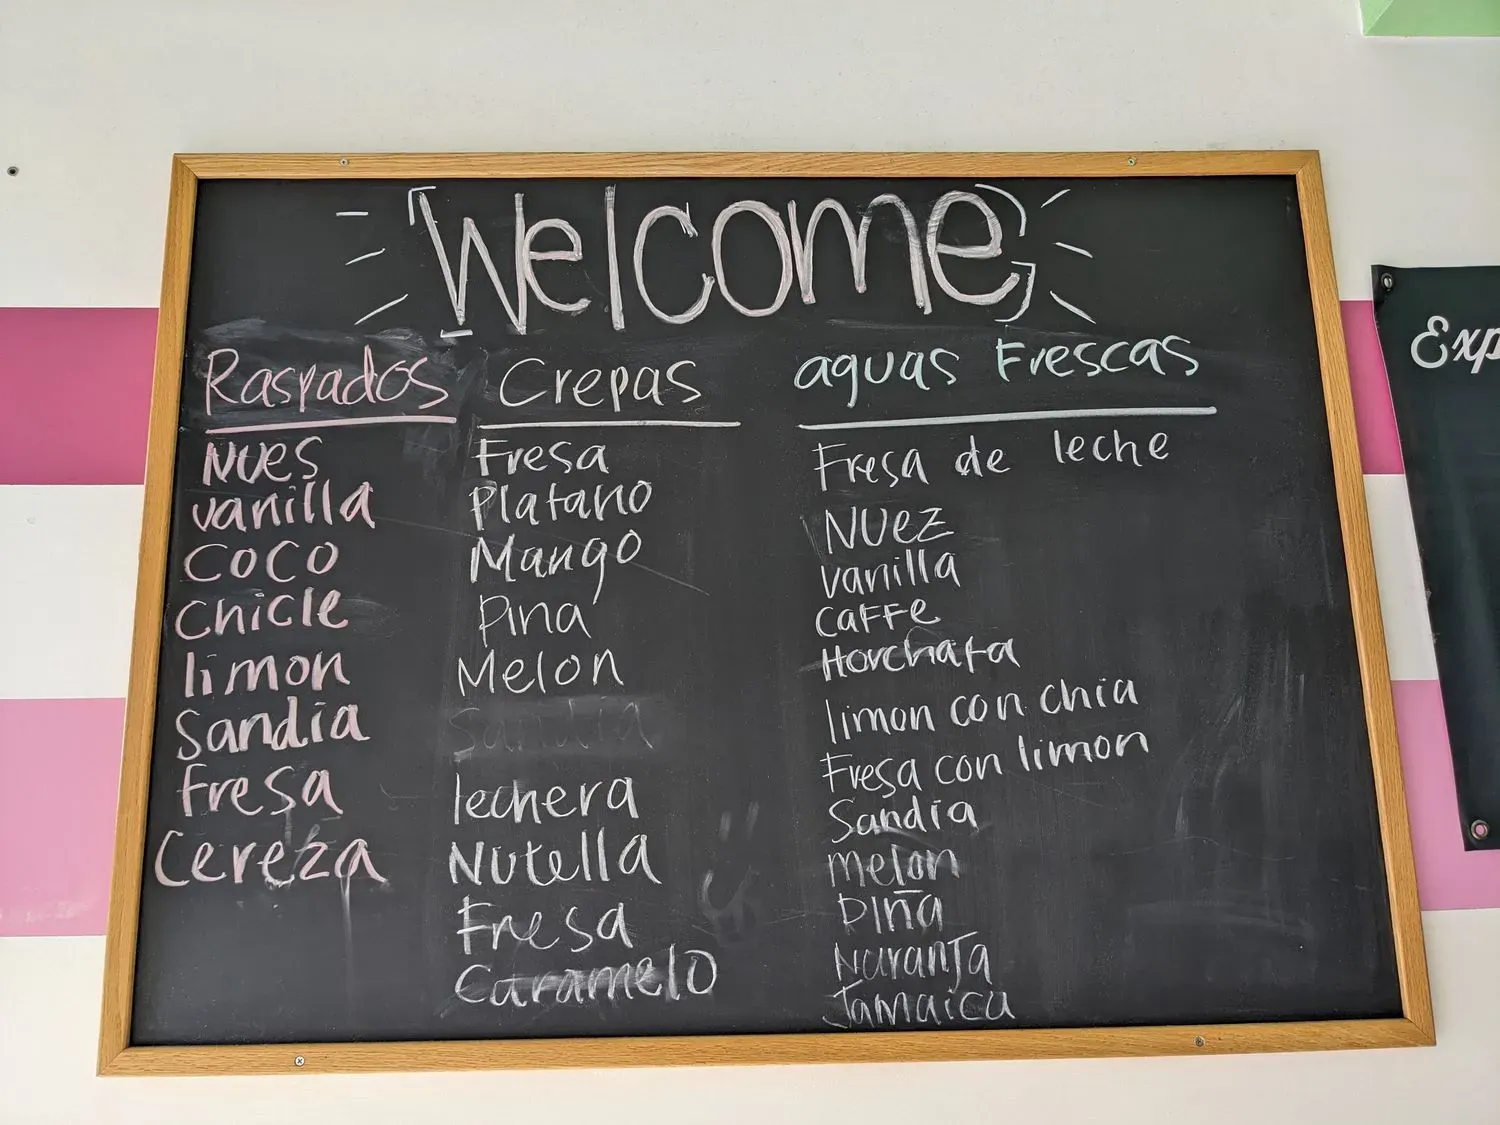 Welcome
Raspados
NUES
vanilla
COCO
Chicle
limon
Sandia
Fresa
Cereza
Crepas
Fresa
Platano
Mango
Pina
Melon
Sandia
lechera
Nutella
Fresa
Caramelo
aguas Frescas
Fresa de leche
NUEZ
vanilla
CAFFE
Horchata
limon con chia
Fresa con limon
Sandia
melon
Piña
Naranja
Jamaica
Exp